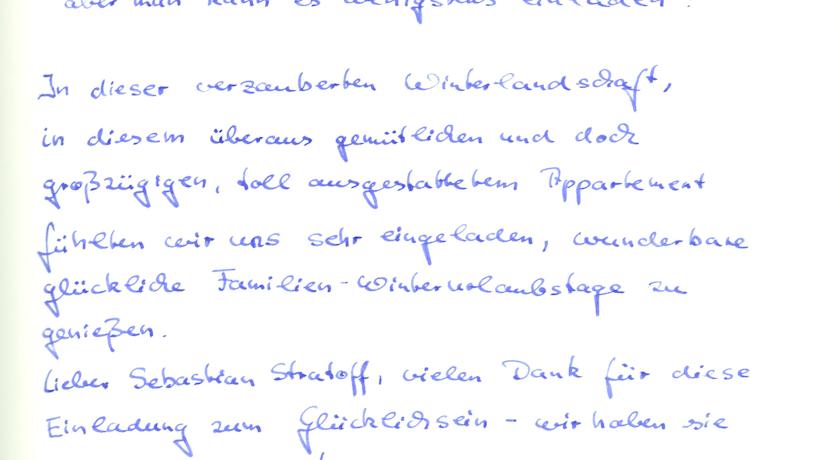 aber man kann es wenigstens einladen.
In dieser verzauberten Winterlandschaft,
in diesem überaus gemütlichen und doch
großzügigen, toll ausgestattetem Appartement
fühlten wir uns sehr eingeladen, wunderbare
glückliche Familien-Winterurlaubstage zu
genießen.
Lieber Sebastian Stratoff, vielen Dank für diese
Einladung zum Glücklichsein - wir haben sie